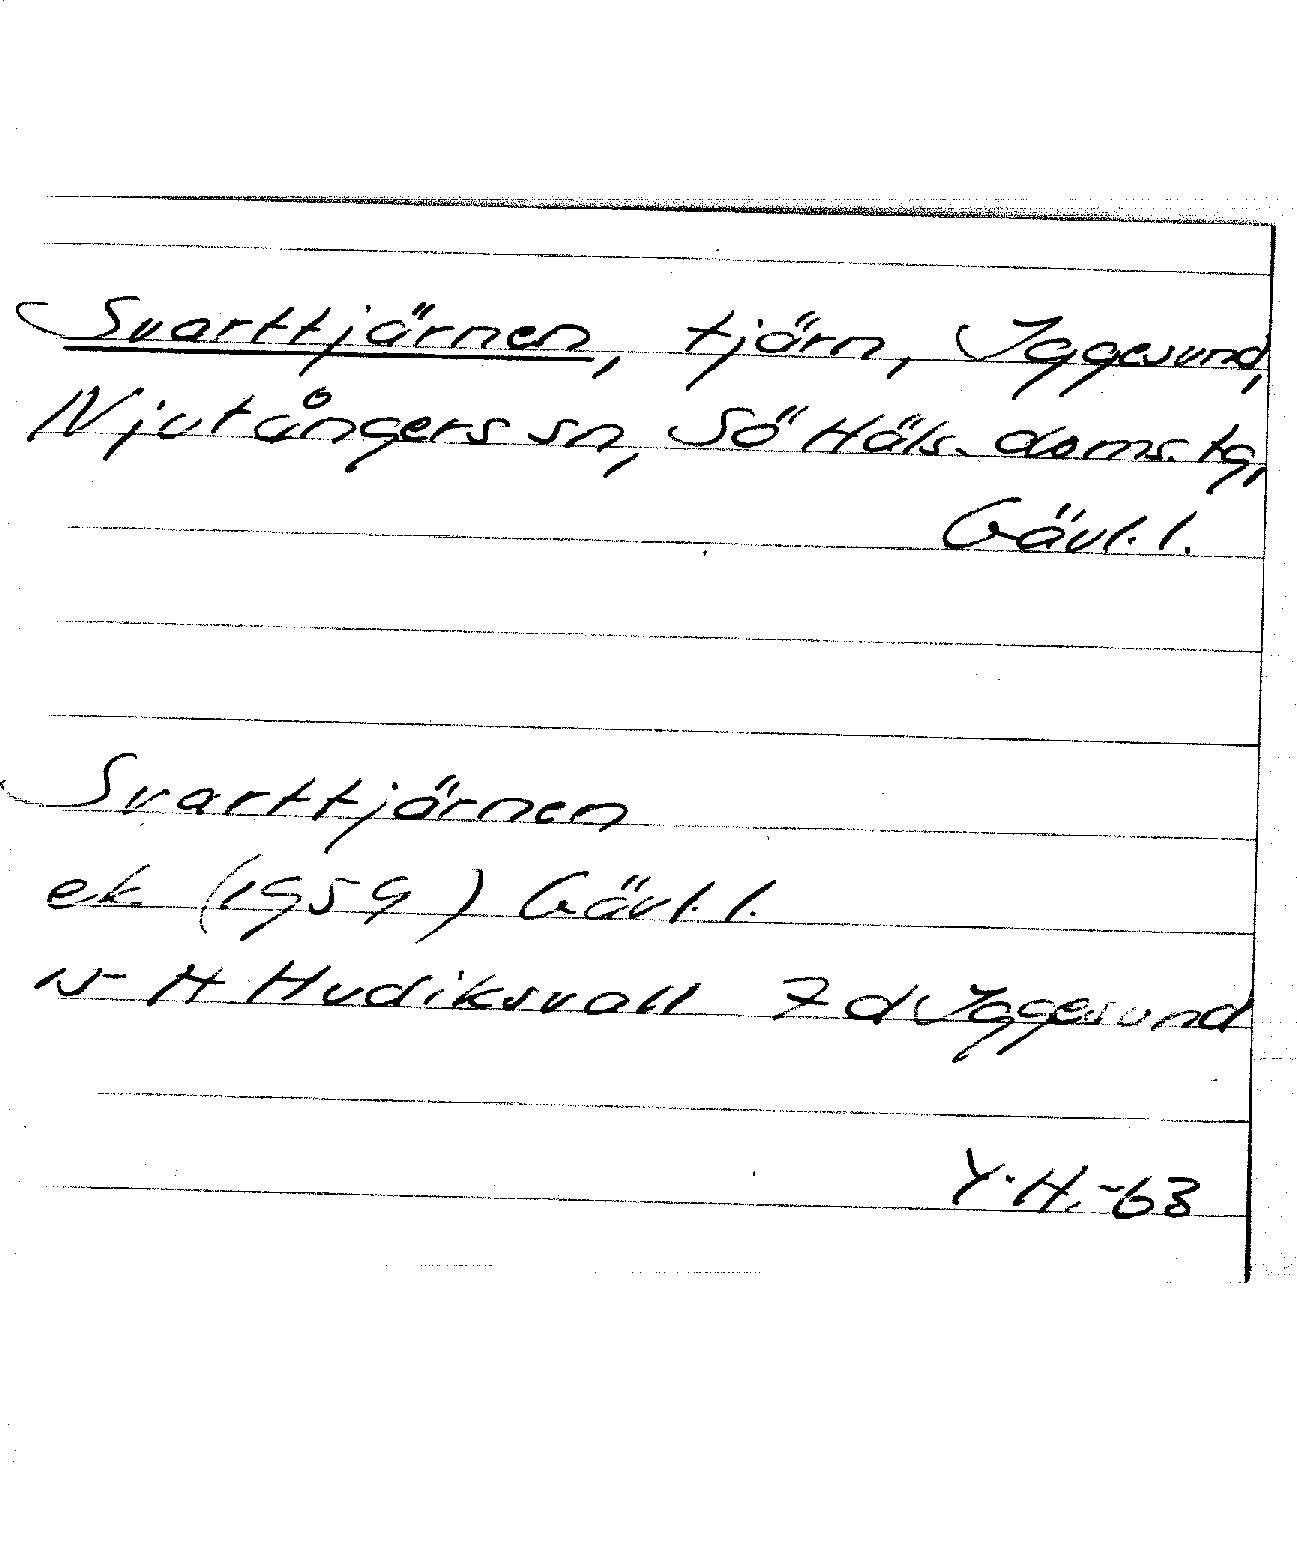 Svarttjärnen, tjärn, Iggesund,
Njutångers sn, Sö Häls. doms. tg,
Gävl. l.
Svarttjärnen
ek (1959) Gävl. l.
15 H Hudiksvall 7 d Iggesund
Y. H. -63